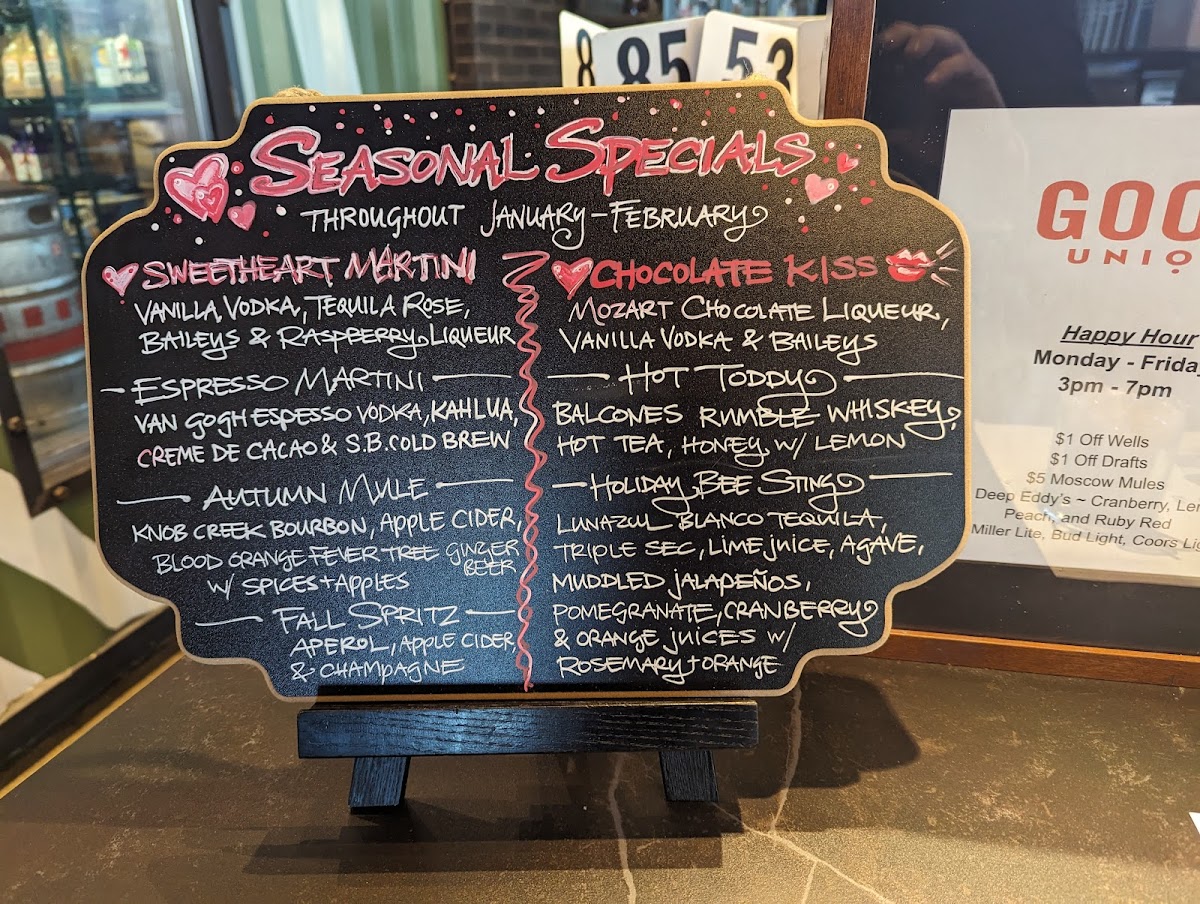 8 85 53
SEASONAL SPECIALS
THROUGHOUT JANUARY - FEBRUARY
SWEETHEART MARTINI
VANILLA VODKA, TEQUILA ROSE,
BAILEYS & RASPBERRY LIQUEUR
ESPRESSO MARTINI
VAN GOGH ESPESSO VODKA, KAHLUA,
CREME DE CACAO & S.B. COLD BREW
AUTUMN MULE
KNOB CREEK BOURBON, APPLE CIDER,
BLOOD ORANGE FEVER TREE GINGER
BEER
W/ SPICES + APPLES
FALL SPRITZ
APEROL, APPLE CIDER,
& CHAMPAGNE
CHOCOLATE KISS
MOZART CHOCOLATE LIQUEUR,
VANILLA VODKA & BAILEYS
HOT TODDY
BALCONES RUMBLE WHISKEY,
HOT TEA, HONEY, W/ LEMON
HOLIDAY BEE STING
LUNAZUL BLANCO TEQUILA,
TRIPLE SEC, LIME JUICE, AGAVE,
MUDDLED JALAPEÑOS,
POMEGRANATE, CRANBERRY
& ORANGE JUICES W/
ROSEMARY + ORANGE
GOO
UNIQ
Happy Hour
Monday - Friday
3pm - 7pm
$1 Off Wells
$1 Off Drafts
$5 Moscow Mules
Deep Eddy's ~ Cranberry, Lem
Peach, and Ruby Red
Miller Lite, Bud Light, Coors Lig